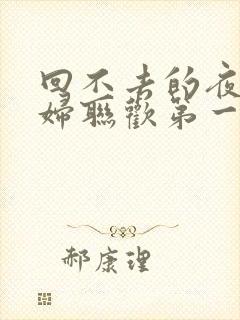 回不去的夜
婦聯歡第一
郝康理